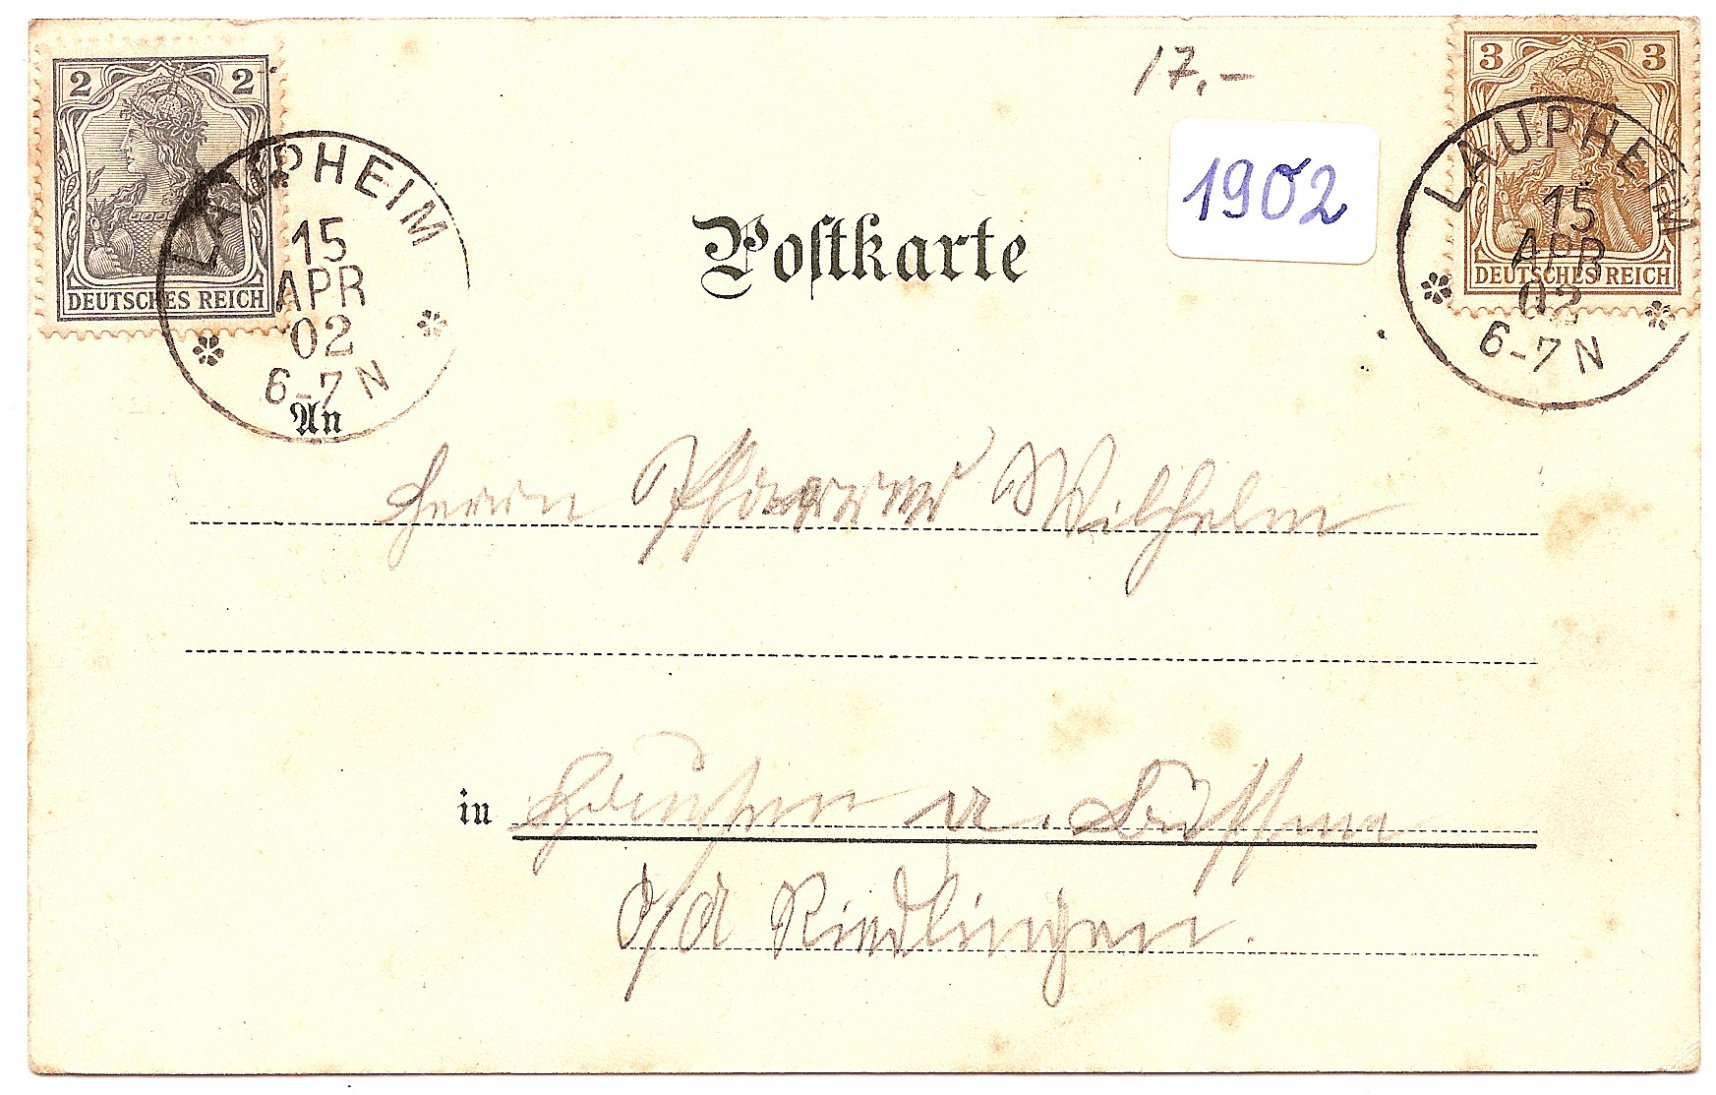 2 2
DEUTSCHES REICH
LAUPHEIM
15
APR
02
6-7 N
17,-
1902
3 3
DEUTSCHES REICH
LAUPHEIM
15
APR
02
6-7 N
Postkarte
An
Herrn Pfarrer Wilhelm
in Hausen a. Bussen
O/A Riedlingen.